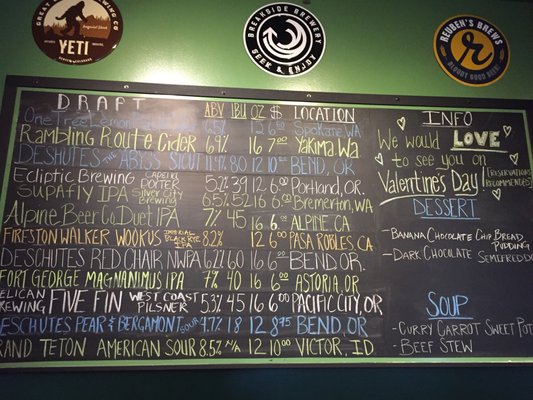 GREAT
BREWING CO
YETI
BREAKSIDE BREWERY
SEEK &
REUBEN'S BREWS
r
DRAFT ABV IBU OZ $ LOCATION
One Tree Lemon 12 6 SPOKANE, WA
Rambling Route Cider 6.9% 16 7 Yakima, WA.
DESCHUTES THE ABYSS STOUT 80 12 10 BEND, OR
Ecliptic Brewing PORTER 5.7% 39 12 6 PORTLAND, OR.
SUPAFLY IPA SILVER CITY BREWING 6.5% 52 16 6 BREMERTON, WA
Alpine Beer Co. Duet IPA 7% 45 16 6 ALPINE, CA
FIRESTON WALKER WOOKUS 8.2% 12 6 PASA ROBLES, CA
DESCHUTES RED CHAIR NWPA 6.2% 60 16 6 BEND OR
FORT GEORGE MAGNANIMUS IPA 7% 40 16 6 ASTORIA, OR
ELICAN REWING FIVE FIN WEST COAST PILSNER 5.3% 45 16 6 PACIFIC CITY, OR
ESCHUTES PEAR & BERGAMONT SOUR 4.7% 18 12 8.75 BEND, OR
RAND TETON AMERICAN SOUR 8.5% N/A 12 10 VICTOR, ID
INFO
We would LOVE
to see you on
Valentine's Day [RESERVATIONS RECOMMENDED]
DESSERT
-BANANA CHOCOLATE CHIP BREAD
PUDDING
-DARK CHOCOLATE SEMIFREDDO
SOUP
-CURRY CARROT SWEET POT
-BEEF STEW